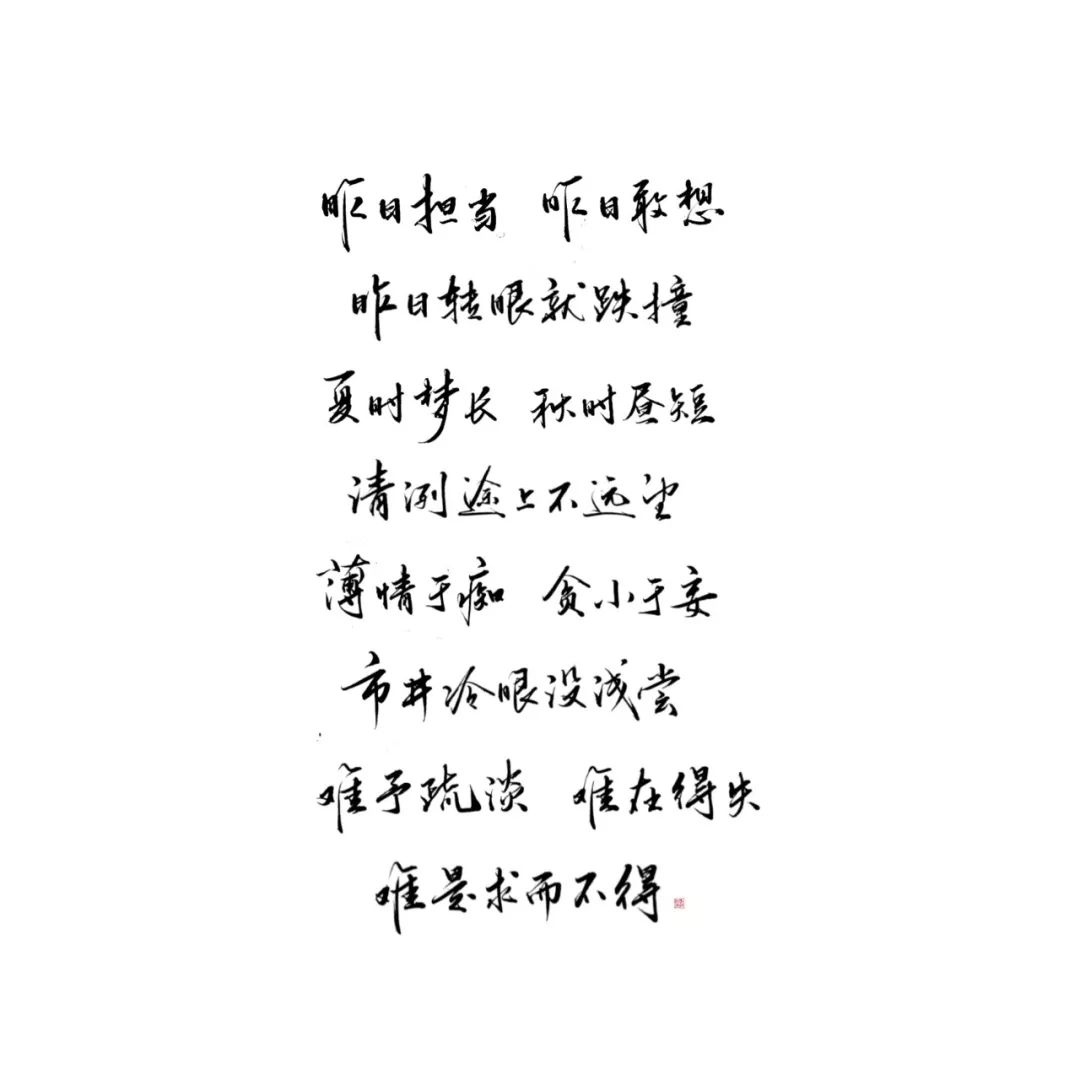 昨日担当 昨日敢想
昨日转眼就跌撞
夏时梦长 秋时昼短
清冽途上不远望
薄情于痴 贪小于妄
市井冷眼没浅尝
难予疏淡 难在得失
难是求而不得